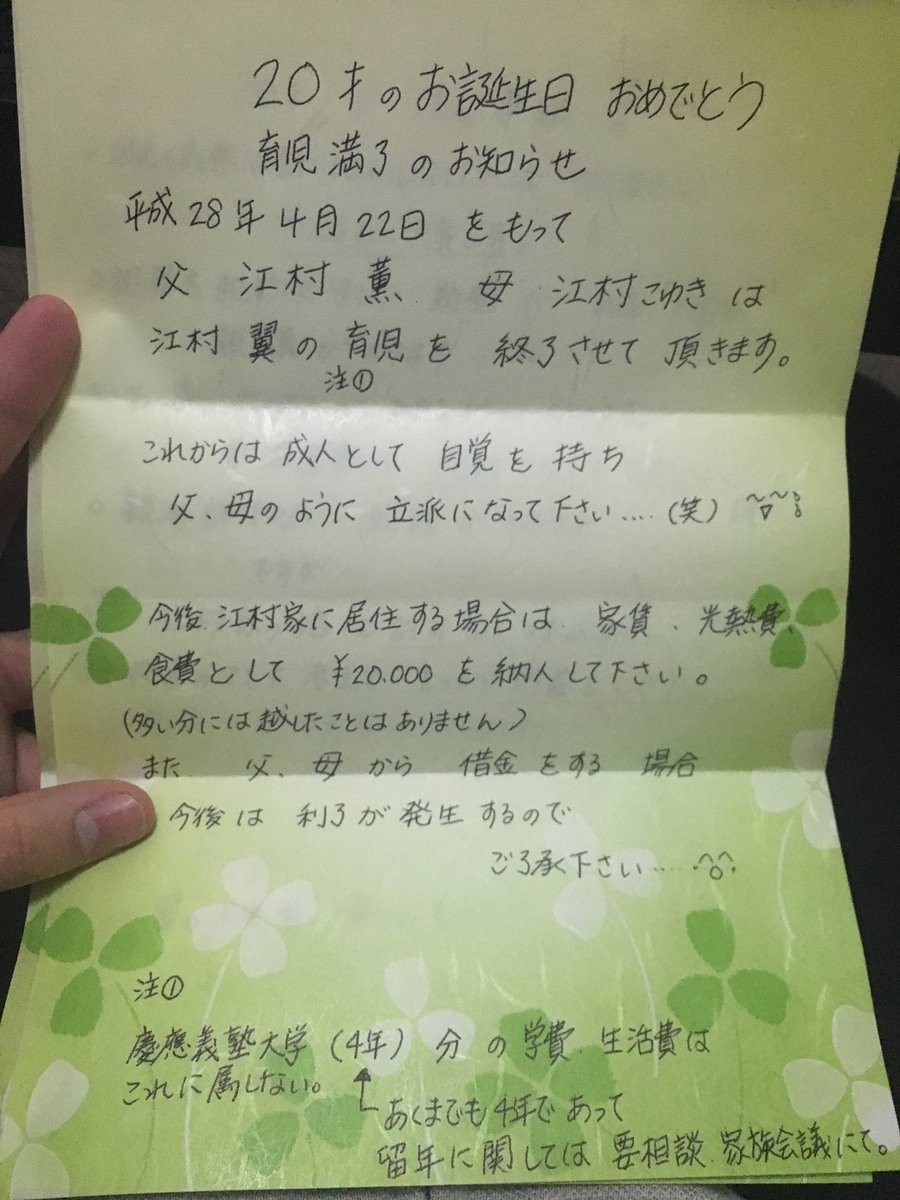 20才のお誕生日 おめでとう
育児満了のお知らせ
平成28年4月22日 をもって
父 江村 薫 母 江村こゆき は
江村 翼の 育児を 終了させて 頂きます。
注①
これからは 成人として 自覚を 持ち
父、母のように 立派になって下さい....(笑)
今後 江村家に居住する場合は 家賃、光熱費、
食費として ¥20.000 を納入して下さい。
(多い分には越したことはありません)
また 父、母から 借金をする 場合
今後は 利子が発生するので
ご了承下さい....
注①
慶應義塾大学(4年)分の学費 生活費は
これに属しない。
あくまでも4年であって
留年に関しては 要相談 家族会議にて。